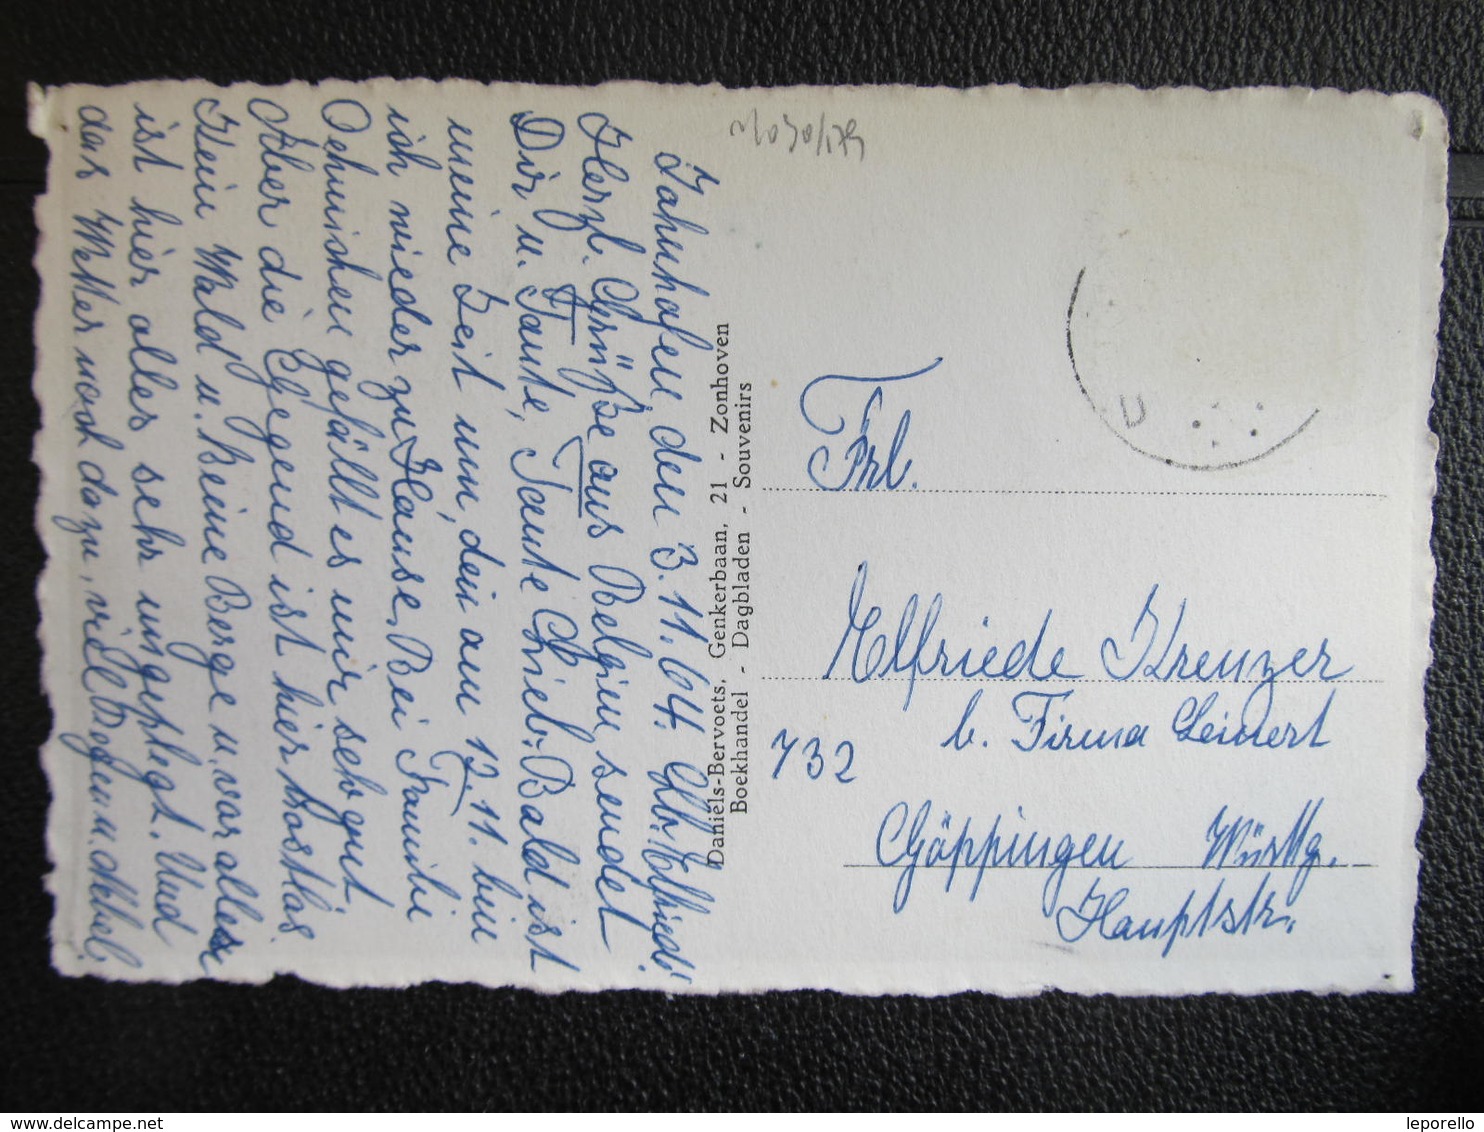 Zahnhofen, den 3.11.64. Lb. Elfriede!
Herzl. Grüße aus Belgien sendet
Dir u. Tante, Tante Chieb. Bald ist
meine Zeit um, den am 12.11. bin
ich wieder zu Hause. Bei Familie
Oehmichen gefällt es mir sehr gut
Aber die Gegend ist hier trostlos
Kein Wald u. keine Berge u. vor allem
ist hier alles sehr ungepflegt. Und
das Wetter noch dazu, viel Regen u. Nebel.
Daniëls-Bervoets, Genkerbaan, 21 - Zonhoven
Boekhandel - Dagbladen - Souvenirs
Frl.
Elfriede Kreuzer
b. Firma Leinert
732
Göppingen Württg.
Hauptstr.
U
leporello